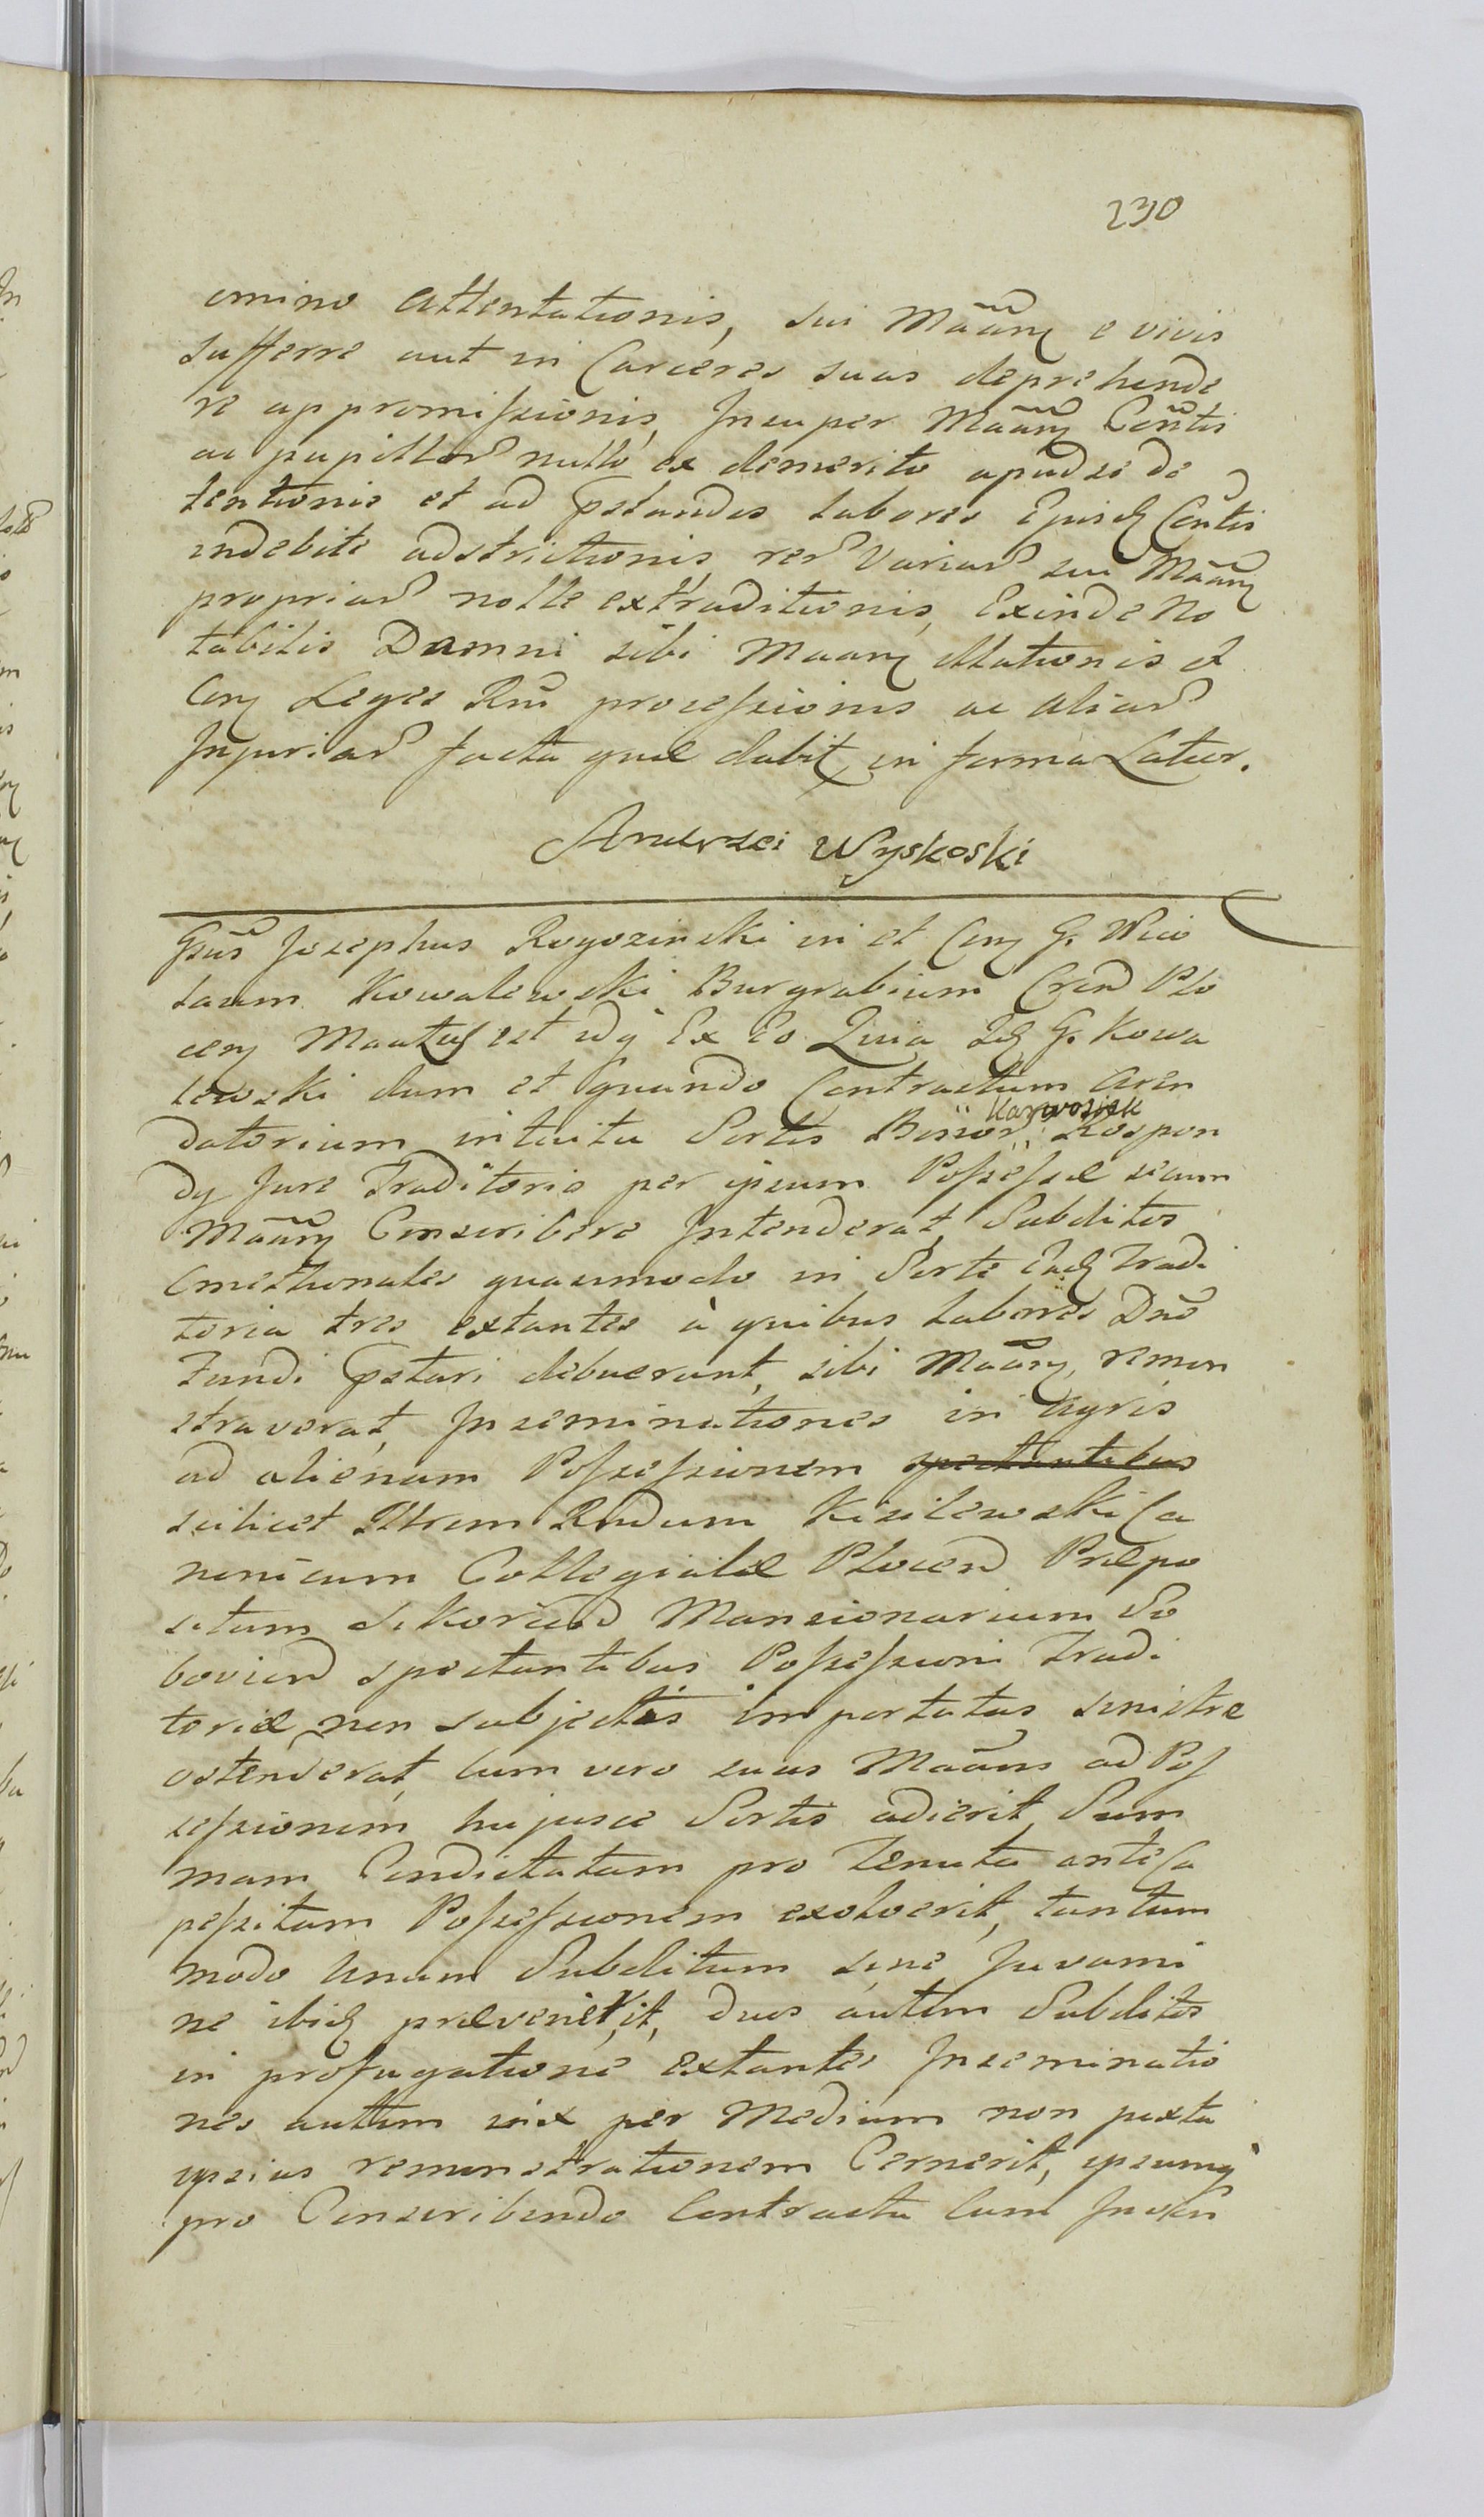 230
omino Attentationis, sui Mããnq e vivis
sufferre aut in Carceres suas deprehende
re appromissionis, Insuper Mãanq Cẽntis
ac pupillor nullo ex demerito apud se de
tentionis et ad pstandos labores Ejusdq Centis
indebite adstrictionis, rer Variar sui Mãanq
propriar nolle extraditionis, Exinde No
tabilis Damni sibi Maanq illationis et
Conq Leges Rni processionis ac aliar
Injuriar facta quæ dabit in forma Latior.
Andrzei Wyskoski
Gsus Josephus Rogozinski in et Conq G. Nico
laum Kowalewski Burgrabium Cren Plo
cenq Maatus est idq Ex Eo Quia Idq G. Kowa
lewski dum et quando Contractum Aren
Karwosiek
datorium intuitu Sortis Bonor Kospon
dy Jure Traditorio per ipsum Possessæ secum
Mãanq Conscribere Intenderat, Subditos
Cmethonales quasimodo in Sorte Eadq Tradi
toria tres extantes à quibus labores Dno
Fundi pstari debuerunt, sibi Mãanq, remon
straverat, Inseminationes in Agris
ad alienam Possessionem spectantibus
scilicet Illrem Rndum Kisilewski Ca
nonicum Collegiatæ Plocen Præpo
situm Sikorien Mansionarium Bo
bovien spectantibus Possessioni Tradi
toriæ non subjectis importatas sinistre
ostenderat, cum vero suus Maans ad Pos
sessionem hujusce Sortis adierit, Sum
mam Condictatam pro Tenuta ante Ca
pessitam Possessionem exolverit, tantum
modo Unum Subditum sine Juvami
ne ibidq prævenerit, duos autem Subditos
in profugatione extantes Inseminatio
nes autem vix per Medium non juxta
ipsius remonstrationem Cernerit, ipsumq
pro Conscribendo Contractu cum